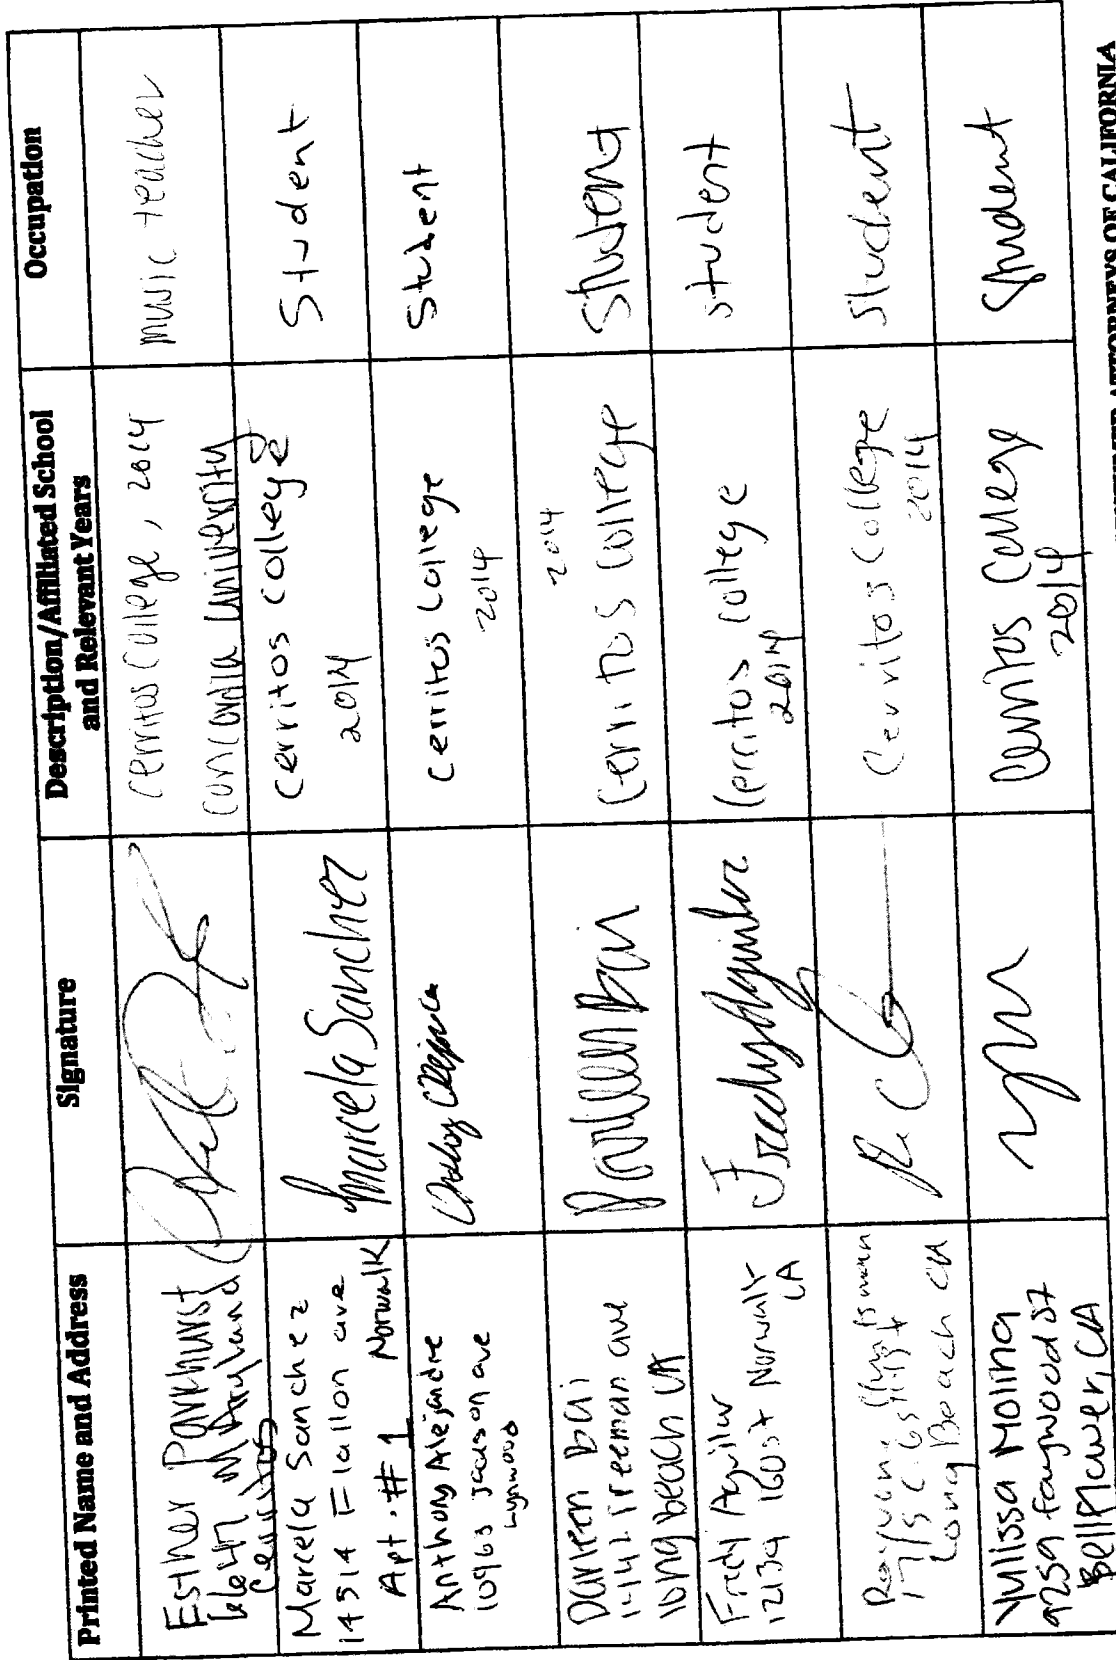 Printed Name and Address
Signature
Description/Affiliated School
and Relevant Years
Occupation
Esther Parkhurst
Maryland
Cerritos
Cerritos College, 2014
Concordia University
music teacher
Marcela Sanchez
14514 Fallon ave
Apt. #1 Norwalk
Marcela Sanchez
cerritos college
2014
Student
Anthony Alejandre
10963 Jackson ave
Lynwood
Cerritos College
2014
Student
Darleen Bai
1442 Freeman ave
long beach CA
Darleen Bai
2014
Cerritos College
Student
Fredy Aguilar
12139 160st Norwalk
CA
Fredy Aguilar
Cerritos college
2014
student
Long Beach CA
Cerritos College
2014
Student
Yulissa Molina
9259 faywood st
Bellflower, CA
Cerritos College
2014
Student
ATTORNEYS OF CALIFORNIA